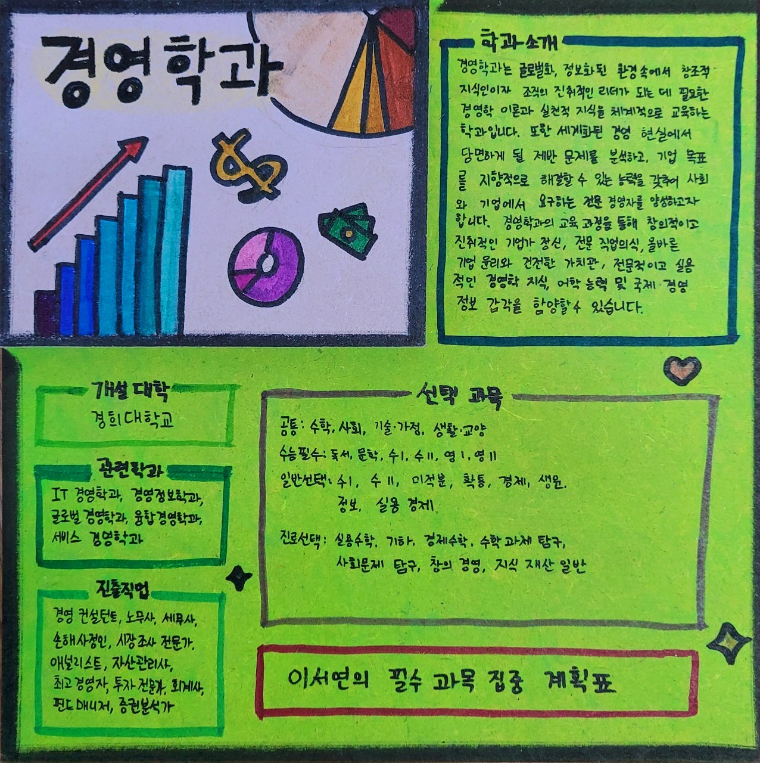 경영학과
학과소개
경영학과는 글로벌화, 정보화된 환경속에서 창조적
지식인이자 조직의 진취적인 리더가 되는 데 필요한
경영학 이론과 실천적 지식을 체계적으로 교육하는
학과입니다. 또한 세계화된 경영 현실에서
당면하게 될 제반 문제를 분석하고, 기업 목표
를 지향적으로 해결할 수 있는 능력을 갖추어 사회
와 기업에서 요구하는 전문 경영자를 양성하고자
합니다. 경영학과의 교육 과정을 통해 창의적이고
진취적인 기업가 정신, 전문 직업의식, 올바른
기업 윤리와 건전한 가치관, 전문적이고 실용
적인 경영학 지식, 어학 능력 및 국제 경영
정보 감각을 함양할 수 있습니다.
개설 대학
경희대학교
관련학과
IT 경영학과, 경영정보학과,
글로벌 경영학과, 융합경영학과,
서비스 경영학과
진출직업
경영 컨설턴트, 노무사, 세무사,
손해사정인, 시장조사 전문가,
애널리스트, 자산관리사,
최고경영자, 투자전문가, 회계사,
펀드매니저, 증권분석가
선택 과목
공통: 수학, 사회, 기술·가정, 생활·교양
수능필수: 독서, 문학, 수I, 수II, 영I, 영II
일반선택: 수I, 수II, 미적분, 확통, 경제, 생윤,
정보, 실용 경제
진로선택: 실용수학, 기하, 경제수학, 수학 과제 탐구,
사회문제 탐구, 창의 경영, 지식 재산 일반
이서연의 필수 과목 집중 계획표